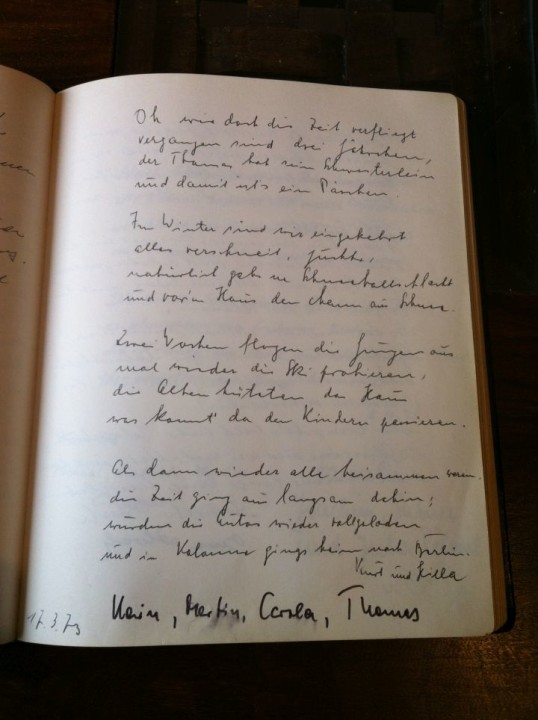 Oh wie doch die Zeit verfliegt
vergangen sind drei Jährchen,
der Thomas hat ein Schwesterlein
und damit ist's ein Pärchen.
Im Winter sind wir eingekehrt
alles verschneit, juchhe,
natürlich gabs ne Schneeballschlacht
und vor'm Haus den Mann aus Schnee.
Zwei Wochen flogen die Jungen aus
mal wieder die Ski probieren,
die Alten hüteten das Haus
was konnt' da den Kindern passieren.
Als dann wieder alle beisammen waren
die Zeit ging langsam dahin;
wurden die Autos wieder vollgeladen
und in Kolonne gings heim nach Berlin.
Kurt und
Karin, Martin, Carola, Thomas
17.3.79